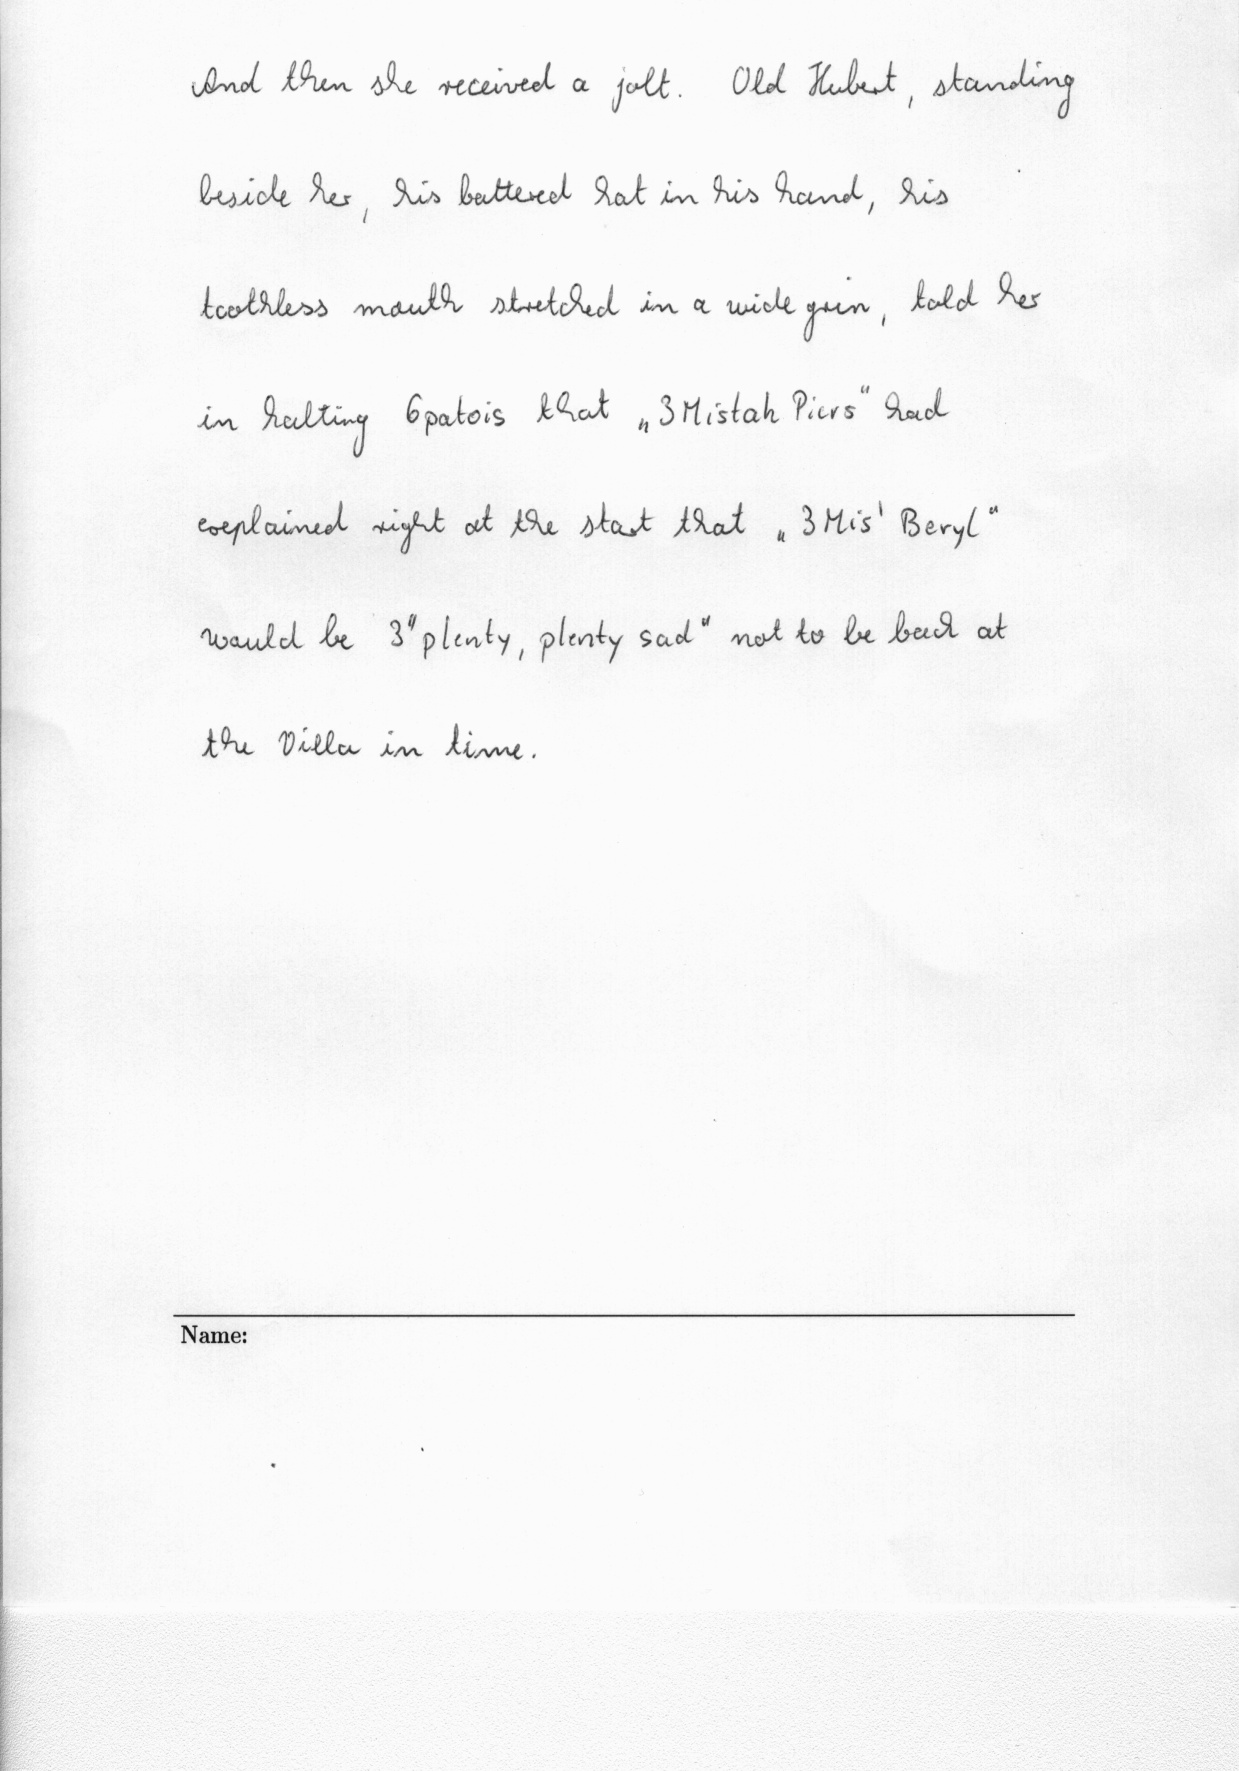 And then she received a jolt. Old Hubert, standing
beside her, his battered hat in his hand, his
toothless mouth stretched in a wide grin, told her
in halting 6patois that „3Mistah Piers" had
explained right at the start that „3Mis' Beryl"
would be 3"plenty, plenty sad" not to be back at
the Villa in time.
Name: